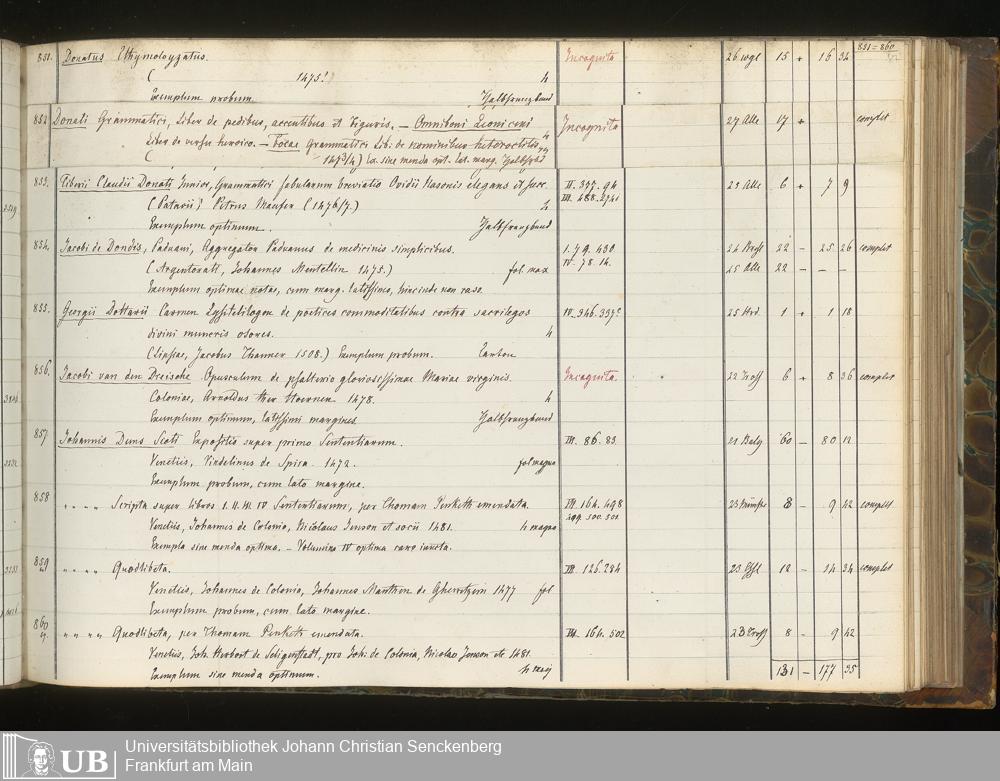 851 = 860
851. Donatus Ethymologyzatus. Incognita 26 15 + 16 32
( 1475? 4
Exemplum probum. Halbfranzband
852 Donati Grammatici, Liber de pedibus, accentibus et figuris. — Omniboni Leoniceni Incognita 27 Alle 17 + complet
Liber de versu heroico. — Focae Grammatici Lib: de nominibus heteroclitis 4
( 1473/4) Ex. sine menda opt. lat. marg. Halbfrzbd
853. Tiberii Claudii Donati, Junior, Grammatici fabularum breviatio Ovidii Nasonis elegans et succ. IV. 397. 94 23 Alle 6 + 7 9
(Patavii? Petrus Maufer (1476/7.) 4 III. 488. 274
Exemplum optimum. Halbfranzband
854. Jacobi de Dondis, Paduani, Aggregator Paduanus de medicinis simplicibus. I. 79. 430. 24 22 – 25 26 complet
(Argentorati, Johannes Mentellin 1475.) fol. max IV. 78. 14. 25 Alle 22 – – –
Exemplum optimae notae, cum marg. latissimo, hincinde non raso.
855. Georgii Dottanii Carmen de poetices commoditatibus contra sacrilegos IV. 346. 337 25 Hrd. 1 + 1 18
divini muneris osores. 4
(Lipsiae, Jacobus Thanner 1508.) Exemplum probum. Carton
856. Jacobi van den Dreische Opusculum de psalterio gloriosissimae Mariae virginis. Incognita. 22 6 + 8 36 complet
Coloniae, Arnoldus ther Hoernen. 1478. 4
Exemplum optimum, latissimi margines. Halbfranzband
857 Johannis Duns Scoti Expositio super primo Sententiarum. III. 86. 83 21 60 – 80 12
Venetiis, Vindelinus de Spira. 1472. fol magno
Exemplum probum, cum lato margine.
858 „ „ „ „ Scripta super libros I. II. III. IV Sententiarum, per Thomam Penketh emendata. III. 164. 498 23 8 – 9 42 complet
Venetiis, Johannes de Colonia, Nicolaus Jenson et socii 1481. 4 magno 499. 500. 501
Exempla sine menda optima. – Volumina IV optima cura iuncta.
859 „ „ „ „ Quodlibeta. III. 126. 284 23 12 – 14 34 complet
Venetiis, Johannes de Colonia, Johannes Manthen de Gherretzem 1477 fol
Exemplum probum, cum lato margine.
860 „ „ „ „ Quodlibeta, per Thomam Penketh emendata. III. 164. 502 23 8 – 9 42
Venetiis, Joh. Herbort de Seligenstadt, pro Joh: de Colonia, Nicolao Jenson etc 1481.
Exemplum sine menda optimum. 4 maj 131 – 177 35
UB
Universitätsbibliothek Johann Christian Senckenberg
Frankfurt am Main